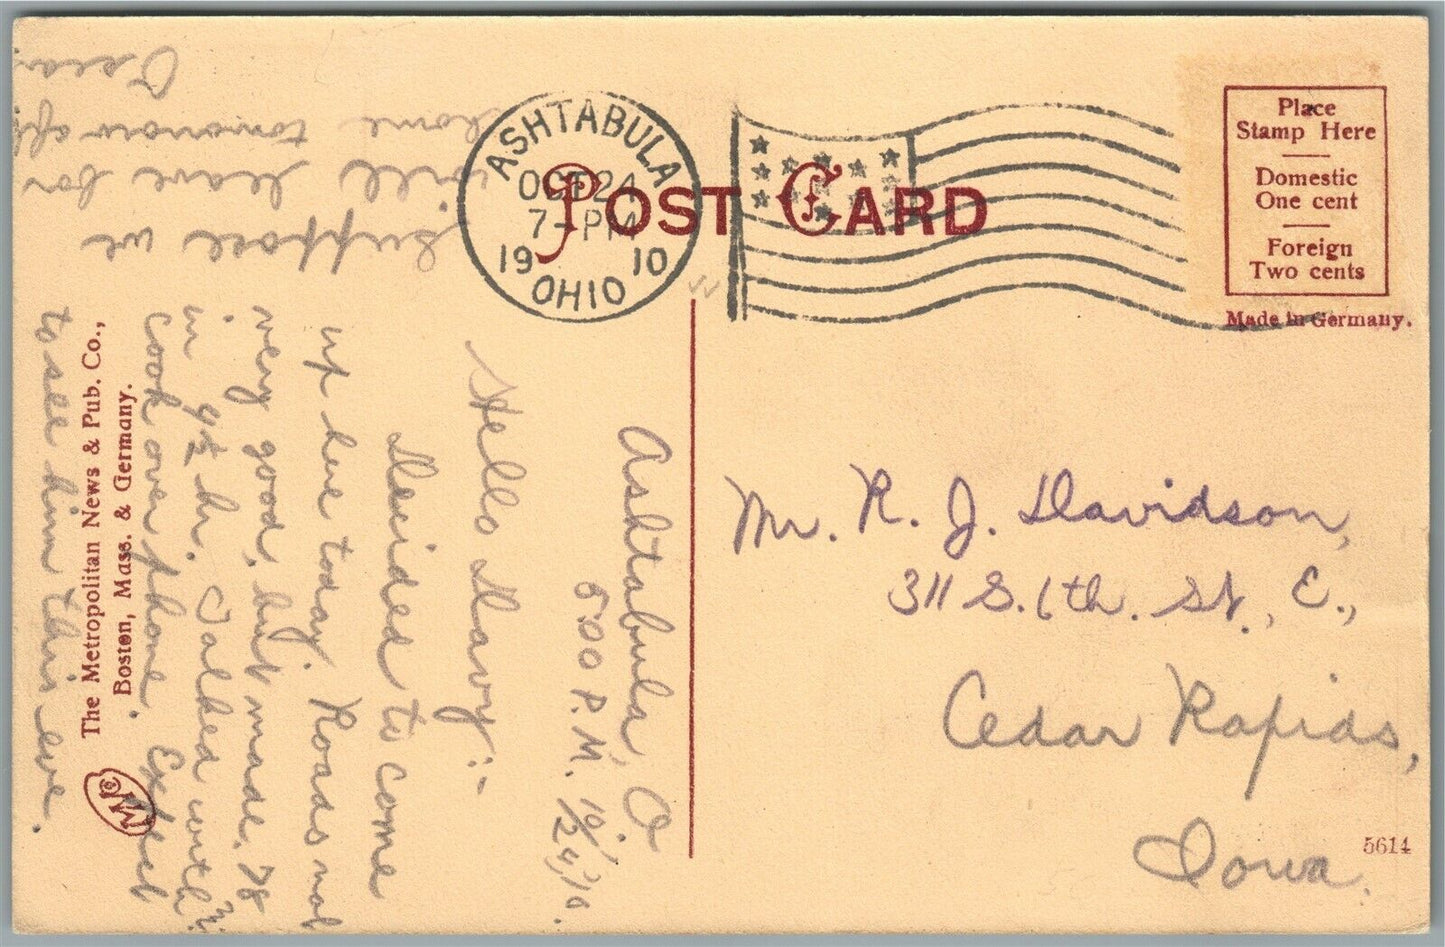 POST CARD
ASHTABULA
OCT 24
7-PM
1910
OHIO
Place
Stamp Here
Domestic
One cent
Foreign
Two cents
Made in Germany.
Ashtabula, O.
500 P.M. 10/24,'10.
Hello Davy:-
Decided to come
up here today. Roads not
very good, but made 78
in 4½ hr. Talked with
Cook over phone. Expect
to see him this eve.
Suppose we
will leave for
home tomorrow
Mr. R. J. Davidson,
311 S. 6th. St., E.,
Cedar Rapids,
Iowa.
The Metropolitan News & Pub. Co.,
Boston, Mass. & Germany.
5614